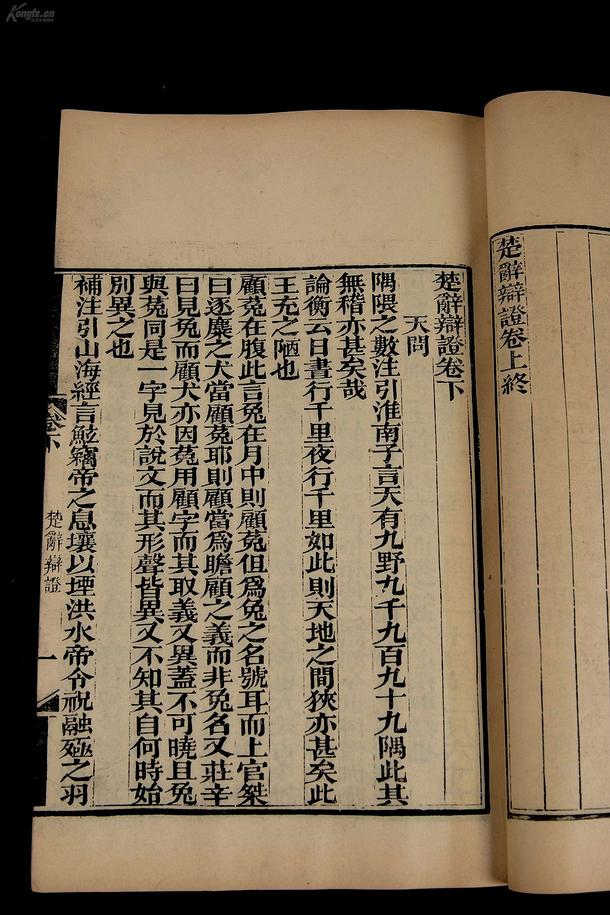 Kongfz.cn
楚辭辯證卷上終
楚辭辯證卷下
天問
隅隈之數注引淮南子言天有九野九千九百九十九隅此其
無稽亦甚矣哉
論衡云日晝行千里夜行千里如此則天地之間狹亦甚矣此
王充之陋也
顧菟在腹此言兔在月中則顧菟但爲兔之名號耳而上官桀
曰逐麋之犬當顧菟耶則顧當爲瞻顧之義而非兔名又莊辛
曰見兔而顧犬亦因菟用顧字而其取義又異蓋不可曉且兔
與菟同是一字見於說文而其形聲皆異又不知其自何時始
別異之也
補注引山海經言鮌竊帝之息壤以堙洪水帝令祝融殛之羽
卷下
楚辭辯證
一